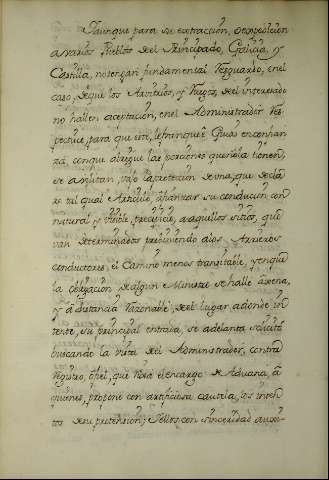 Y aunque para su extraccion, o expedicion
a varios Pueblos del Principado, Galicia, y
Castilla, no tengan fundamental Resguardo, en el
caso, de que los Arvitrios, y Ruegos, del interesado
no hallen aceptacion, en el Administrador Res-
pectivo, para que este, le franquee Guias en confian
za, con que dirigir las porciones que solo tienen,
se adjuntan, vajo la pretension de una, que decla
re tal qual Articulo, afianzar su conducion con
natural y visible, precissa, a aquellos sitios, que
van determinados previniendo a los Arrieros
conductores, el Camino menos transitable, y en que
la obligacion de algun Ministro se halle agena,
y a distancia Razonable, del lugar, adonde in
tente, su principal entrada, se adelanta solicito
buscando la vista del Administrador, contra
registro, o fiel, que tiene el encargo de Aduana, a
quienes, propone con artificiosa cautela, los inten
tos de su pretension; y ellos, con sinceridad auxi-